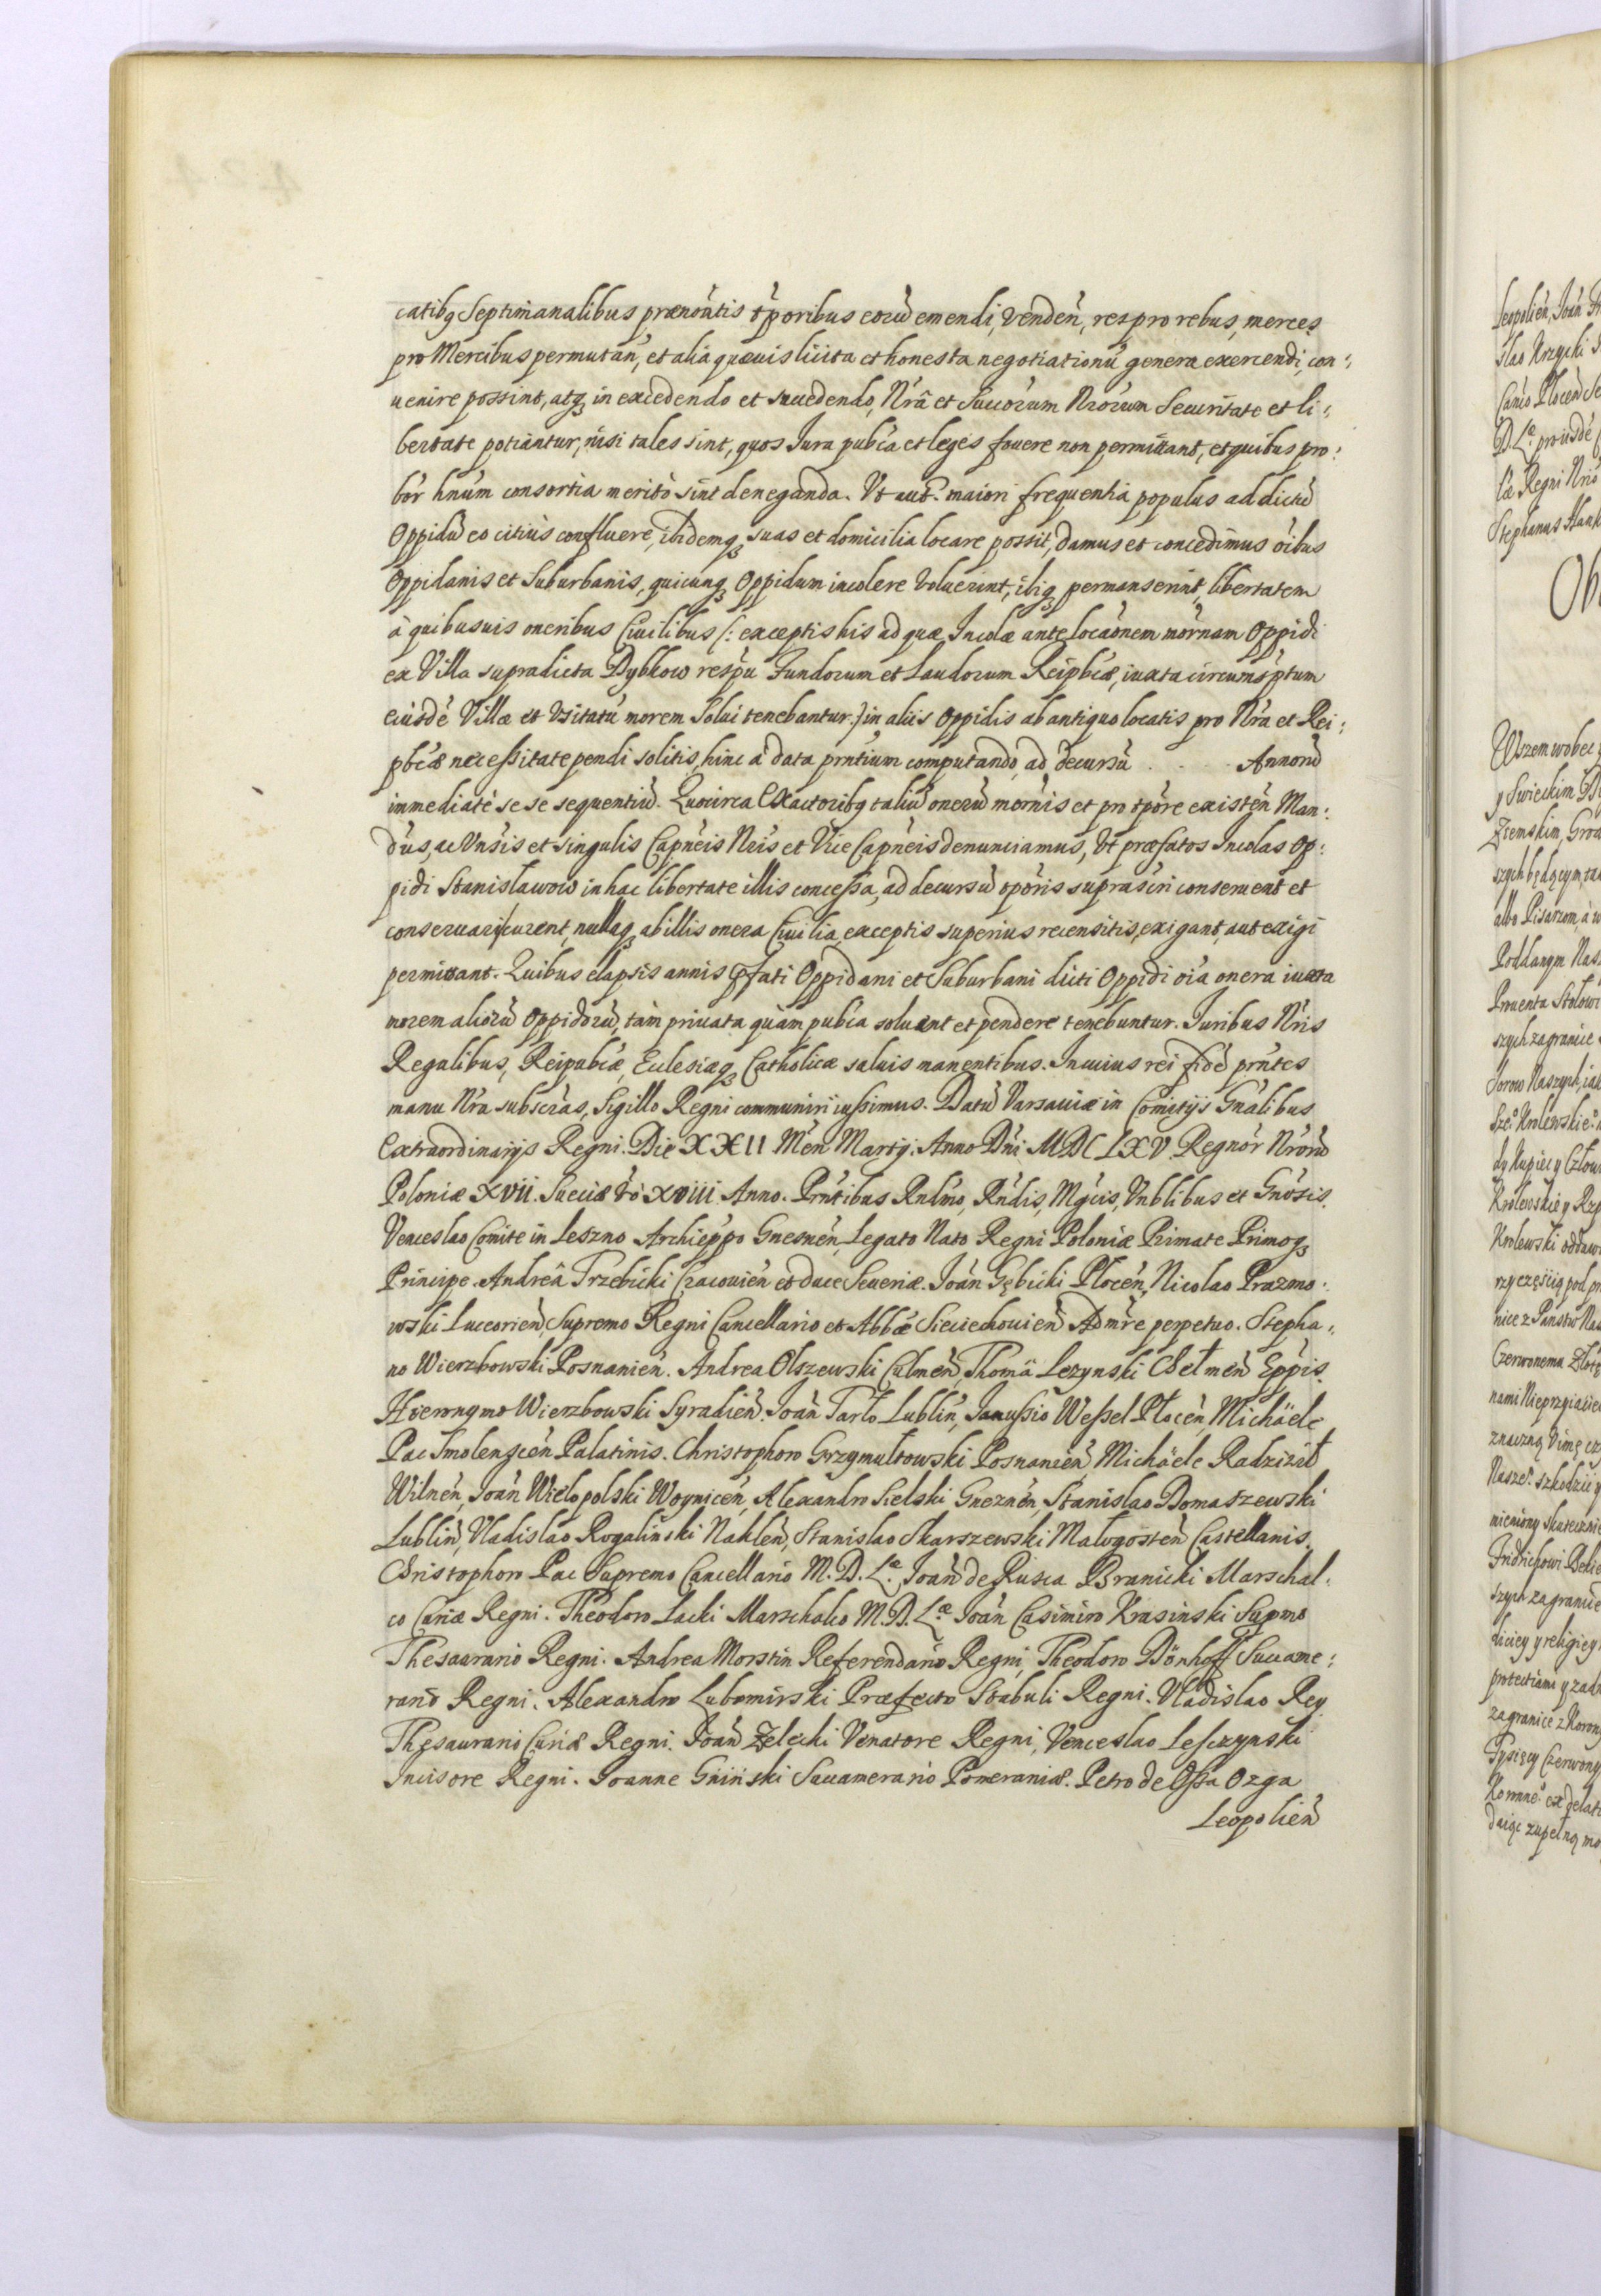 catibq Septimanalibus prænõntis tp̃oribus eorũ emendi, venden̄, res pro rebus, merces
pro Mercibus permutan̄, et alia quævis licita et honesta negotiationũ genera exercendi, con:
uenire possint, atq̃ in excedendo et succedendo, Nrã et Succorum Nrorum Securitate et li:
bertate potiantur, nisi tales sint, quos Jura pubća et leges fouere non permittant, et quibus pro:
bor hnũm consortia meritò sint deneganda. Vt aut̃ maiori frequentia populus ad dictũ
Oppidũ eo citius confluere, ibidemq̃ suas et domicilia locare possit, damus et concedimus õibus
Oppidanis et Suburbanis, quicunq̃ Oppidum incolere voluerint, ibiq̃ permanserint, libertatem
à quibusuis oneribus Ciuilibus (: exceptis his ad quæ Incolæ ante locaõnem mõrnam Oppidi
ex Villa supradicta Dybkow respũ Fundorum et Laudorum Reipbcæ, iuxta circumsp̃tum
eiusdẽ Villæ et Vsitatũ morem Solui tenebantur.) in aliis Oppidis ab antiquo locatis pro Nra et Rei:
pbcæ necessitate pendi solitis, hinc a data prntium computando, ad decursũ . . . . Annorũ
immediatè se se sequentiũ. Quocirca Exactoribq taliũ onerũ mõrnis et pro tp̃ore existen̄ Man:
dũs, ac Vnsis et singulis Capneis Nris et Vice Capneis denunciamus, Vt præfatos Incolas Op:
pidi Stanisławow in hac libertate illis concessa, ad decursũ tp̃oris suprascri conseruent et
conseruari curent, nullaq̃ ab illis onera Ciuilia, exceptis superius recensitis, exigant, aut exigi
permittant. Quibus elapsis annis p̃fati Oppidani et Suburbani dicti Oppidi oĩa onera iuxta
morem aliorũ Oppidorũ, tàm priuata quàm pubća soluent et pendere tenebuntur. Juribus Nris
Regalibus, Reipubcæ, Ecclesiæq̃ Catholicæ saluis manentibus. In cuius rei fidẽ prntes
manu Nra subscras, Sigillo Regni communiri iussimus. Datũ Varsauiæ in Comitijs Gnalibus
Extraordinarijs Regni. Die XXII Men Martij. Anno Dni MDCLXV. Regnor Nrorũ
Poloniæ XVII. Sueciæ v̊o XVIII Anno. Prntibus Rndmo, Rndis, Mgcis, Vnblibus et Gnosis.
Venceslao Comite in Leszno Archieppo Gnesnen̄, Legato Nato Regni Poloniæ Primate Primoq̃
Principe. Andreâ Trzebicki Cracouien̄ et duce Seueriæ. Joan̄ Gębicki Plocen̄, Nicolao Prazmo:
wski Luceorien̄, Supremo Regni Cancellario et Abbẽ Sieciechouien̄ Admr̃e perpetuo. Stepha:
no Wierzbowski Posnanien̄. Andrea Olszewski Culmen̄, Thomâ Lezynski Chełmen̄ Eppis.
Hieronymo Wierzbowski Syradien̄. Joan̄ Tarło Lublin̄, Janussio Wessel Płocen̄, Michäele
Pac Smolenscen̄ Palatinis. Christophoro Grzymułtowski Posnanien̄ Michäele Radziwił
Wilnen̄, Joan̄ Wielopolski Woynicen̄, Alexandro Sielski Gneznen̄, Stanislao Domaszewski
Lublin̄, Vladislao Rogalinski Naklen̄, Stanislao Skarszewski Małogosten̄ Castellanis.
Christophoro Pac Supremo Cancellario M. D. Lᵃ. Joan̄ de Rusca Branicki Marschal:
co Curiæ Regni. Theodoro Lacki Marschalco M. D. Lᵃ Joan̄ Casimiro Krasinski Supmo
Thesaurario Regni. Andrea Morstin Referendario Regni, Theodoro Dönhoff Succame:
rario Regni. Alexandro Lubomirski Præfecto Stabuli Regni. Vladislao Rey
Thesaurario Curiæ Regni. Joan̄ Zelecki Venatore Regni, Venceslao Lesczynski
Incisore Regni. Joanne Gninski Succamerario Pomeraniæ. Petro de Ossa Ozga
Leopolien̄